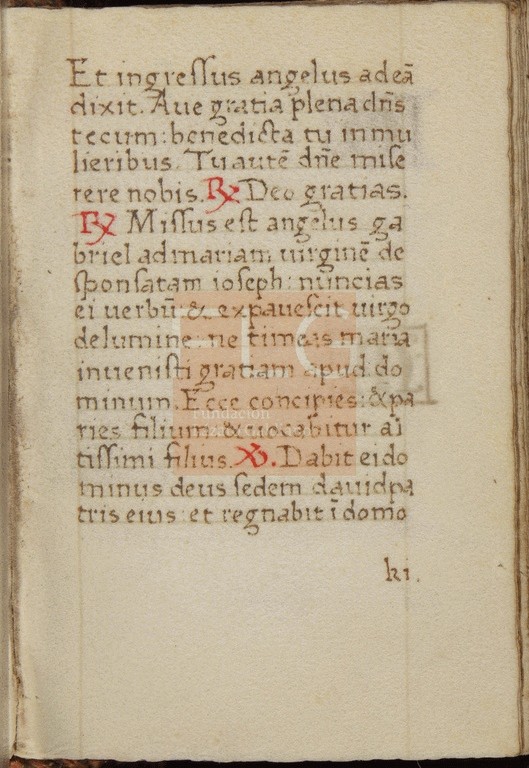 Et ingressus angelus ad eā
dixit. Aue gratia plena dn̄s
tecum: benedicta tu in mu
lieribus. Tu autē dn̄e mise
rere nobis. ℟ Deo gratias.
℟ Missus est angelus ga
briel ad mariam uirginē de
sponsatam ioseph: nūncias
ei uerbū: & expauescit uirgo
de lumine: ne timeas maria
inuenisti gratiam apud do
minum. Ecce concipies: & pa
ries filium & uocabitur al
tissimi filius. ℣. Dabit ei do
minus deus sedem dauid pa
tris eius: et regnabit ī domo
ki.
fundación